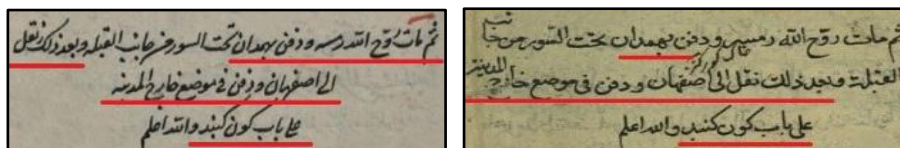 ثم مات روّح الله رمسه و دفن بهمدان تحت السور من جانب القبله و بعد ذلك نقل
الى اصفهان و دفن فى موضع خارج المدينه
على باب كون كنبد والله اعلم
ثم مات روح الله رمسه و دفن بهمدان تحت السور من جانب
القبلة و بعد ذلك نقل الى اصفهان و دفن فى موضع خارج المدينة
على باب كون كنبد والله اعلم